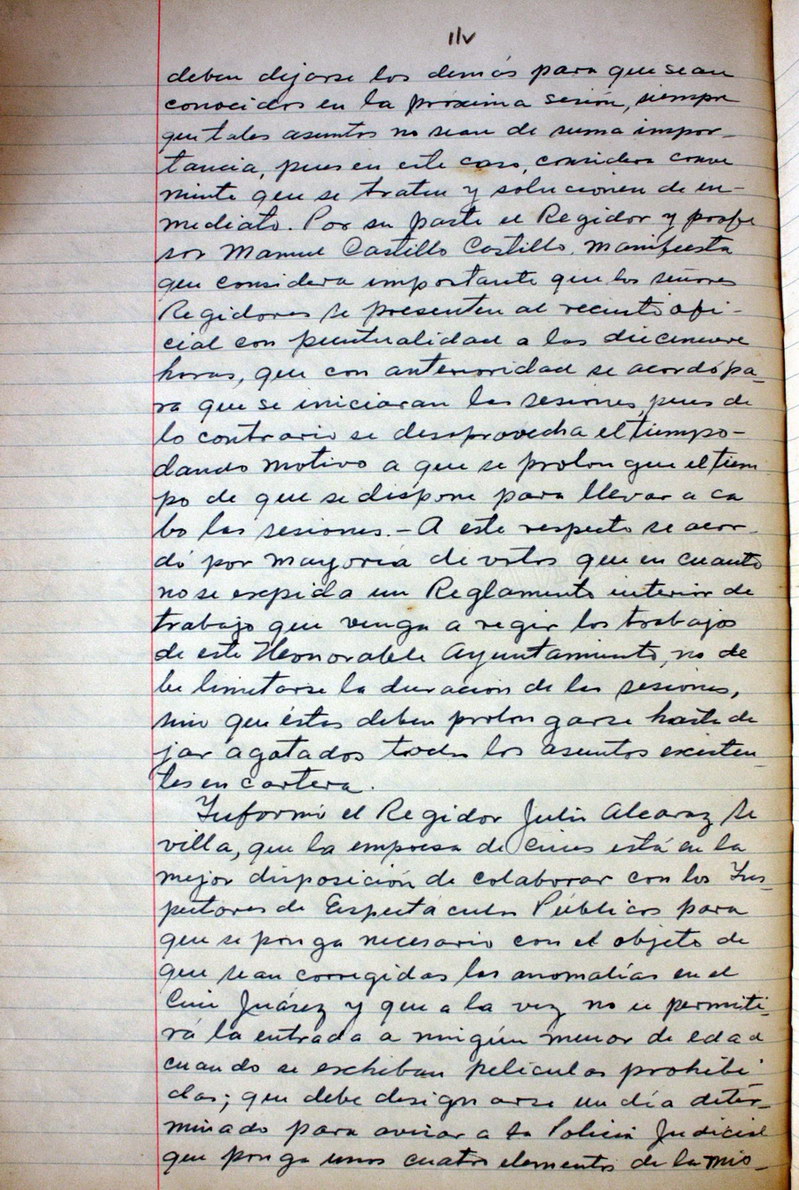 11v
deben dejarse los demás para que sean
conocidos en la próxima sesión, siempre
que tales asuntos no sean de suma impor-
tancia, pues en este caso, considera conve
niente que se traten y solucionen de in-
mediato. Por su parte el Regidor y profe
sor Manuel Castillo Castillo, manifiesta
que considera importante que los señores
Regidores se presenten al recinto ofi-
cial con puntualidad a las diecinueve
horas, que con anterioridad se acordó pa-
ra que se iniciaran las sesiones, pues de
lo contrario se desaprovecha el tiempo-
dando motivo a que se prolongue el tiem
po de que se dispone para llevar a ca
bo las sesiones.- A este respecto se acor-
dó por mayoría de votos que en cuanto
no se expida un Reglamento interior de
trabajo que venga a regir los trabajos
de este Honorable Ayuntamiento, no de
be limitarse la duración de las sesiones,
sino que éstas deben prolongarse hasta de
jar agotados todos los asuntos existen-
tes en cartera.
Informó el Regidor Julio Alcaraz Se
villa, que la empresa de Cines está en la
mejor disposición de colaborar con los Ins-
pectores de Espectáculos Públicos para
que se ponga necesario con el objeto de
que sean corregidas las anomalías en el
Cine Juárez y que a la vez no se permiti-
rá la entrada a ningún menor de edad
cuando se exhiban películas prohibi-
das; que debe designarse un día deter-
minado para avisar a la Policía Judicial
que ponga unos cuatro elementos de la mis-